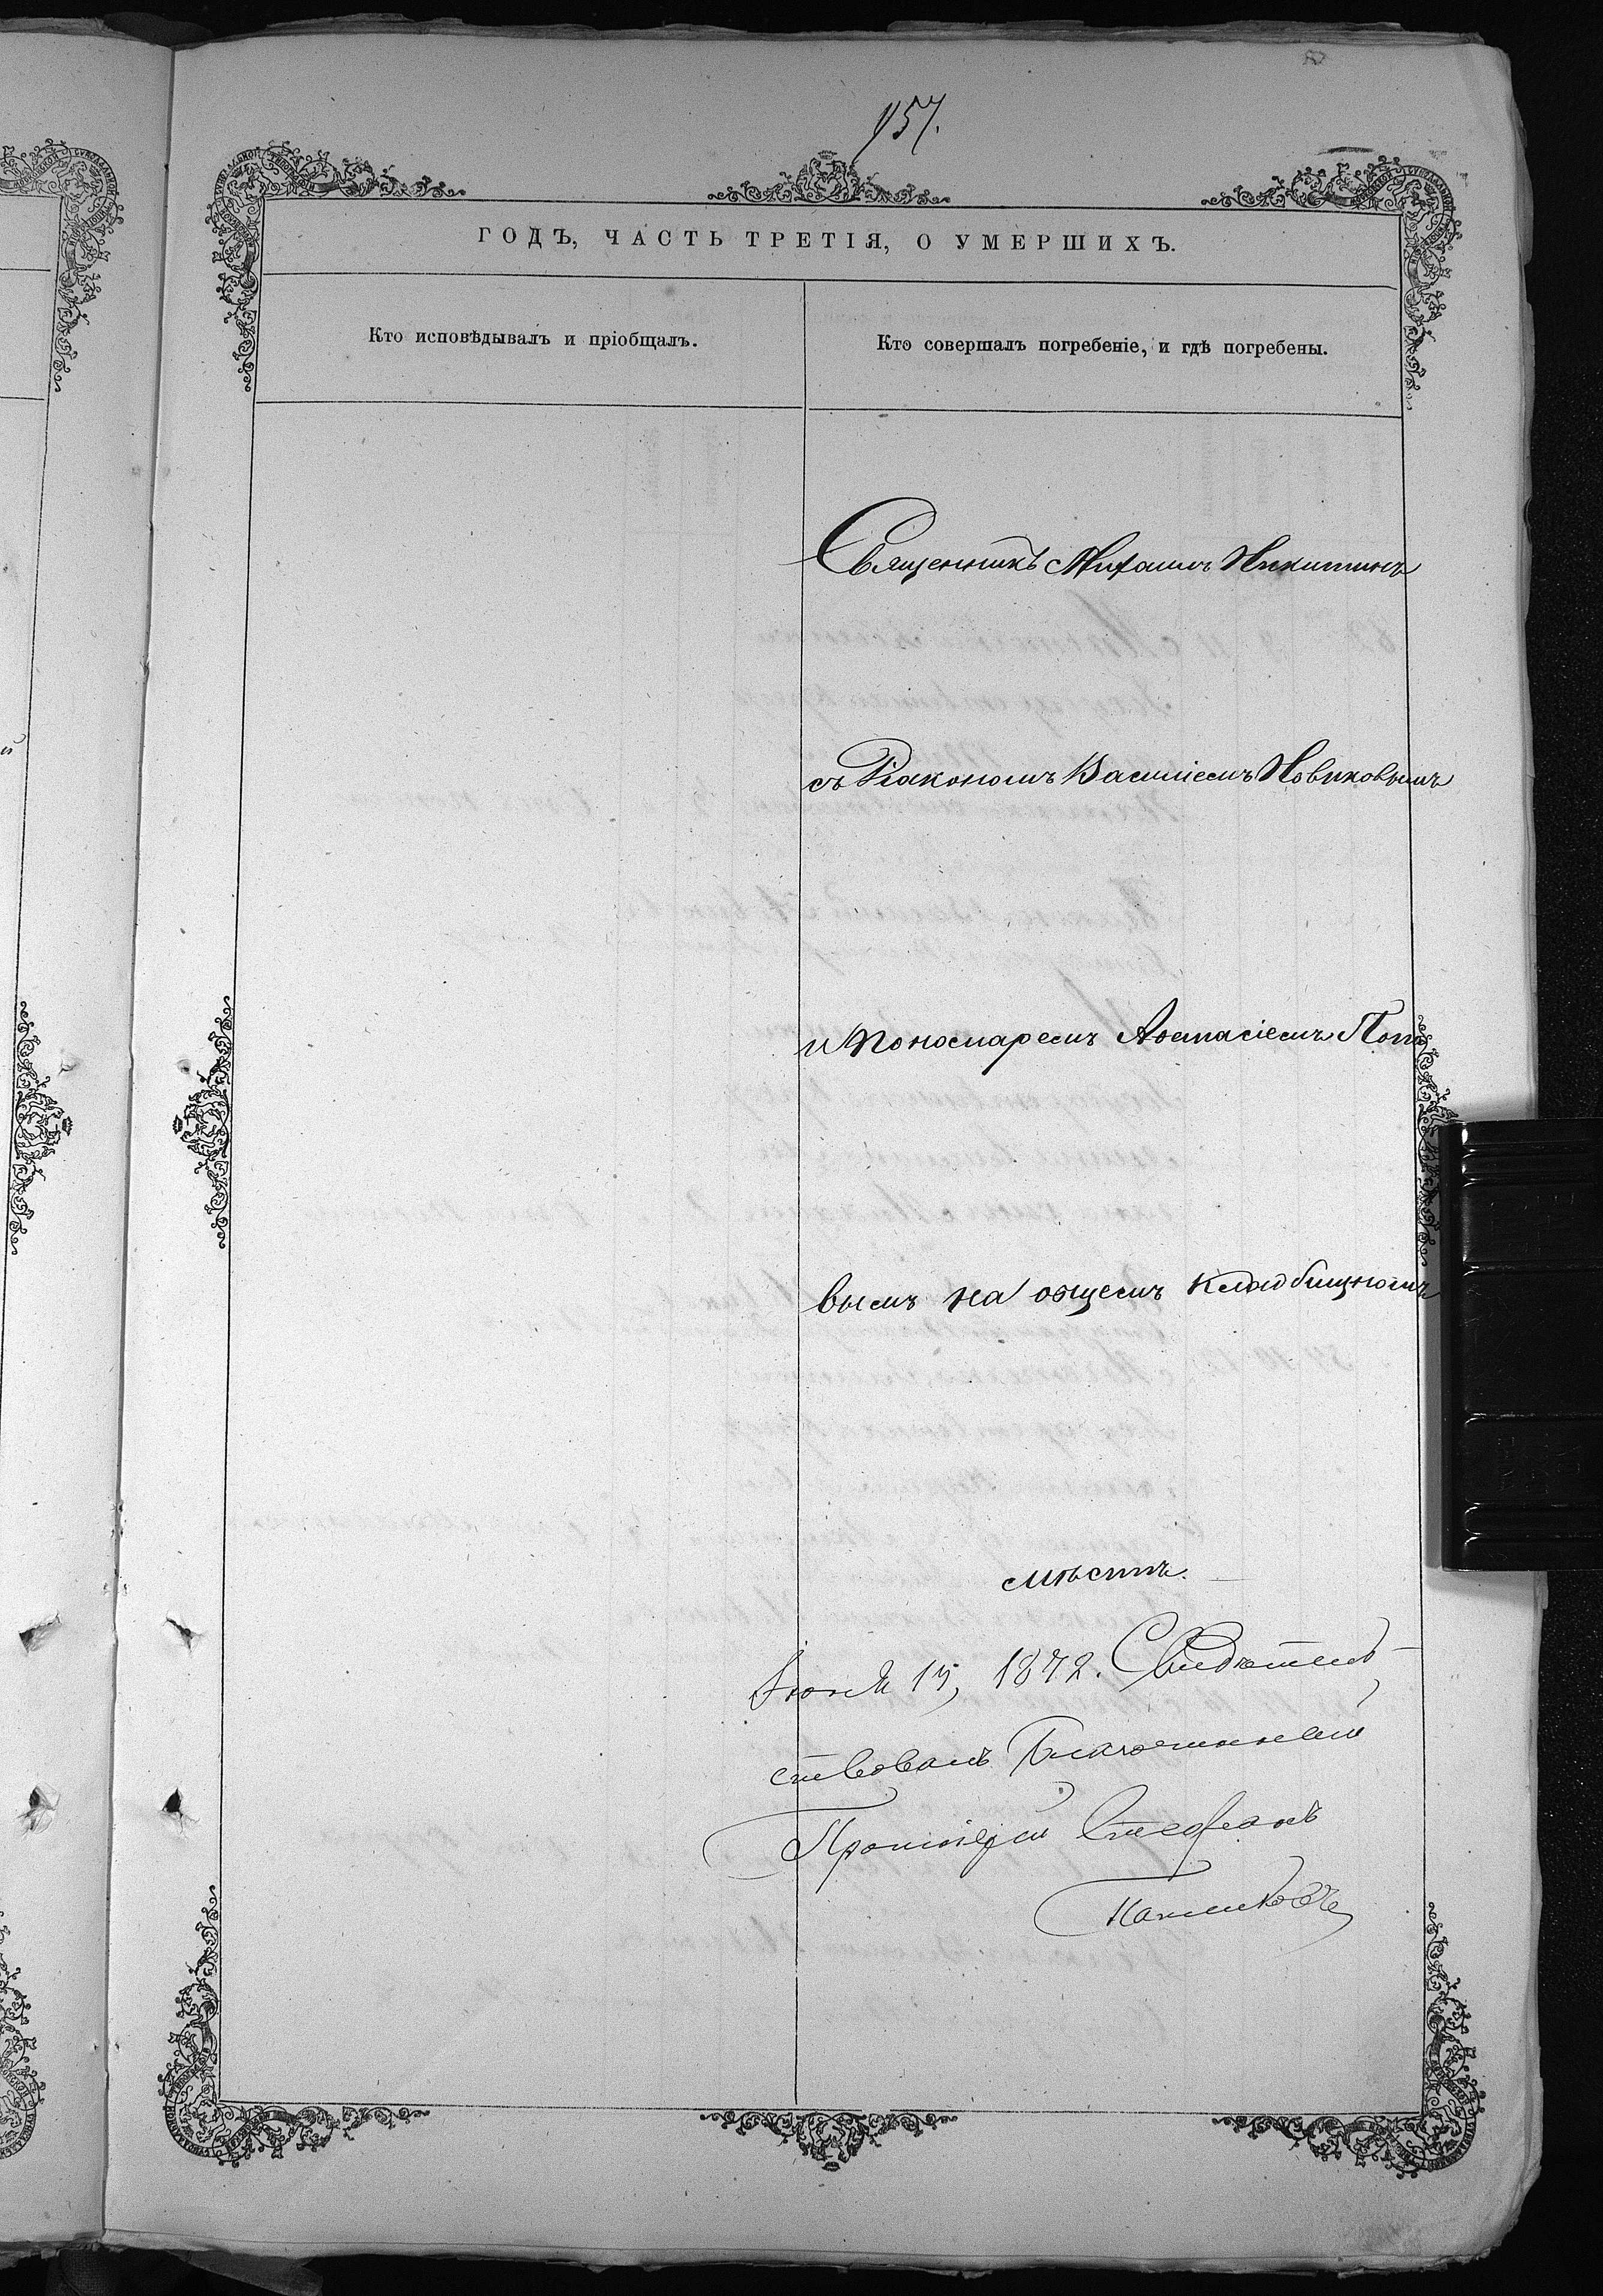 157.
ГОДЪ, ЧАСТЬ ТРЕТІЯ, О УМЕРШИХЪ.
Кто исповѣдывалъ и пріобщалъ.
Кто совершалъ погребеніе, и гдѣ погребены.
Священникъ Михаилъ Никитинъ
съ Діакономъ Василіемъ Новиковымъ
и Пономаремъ Аѳанасіемъ Попо
вымъ на общемъ кладбищномъ
мѣстѣ.
Іюля 15, 1872. Свидѣтель
ствовалъ Благочинный
Протоіерей Стефанъ